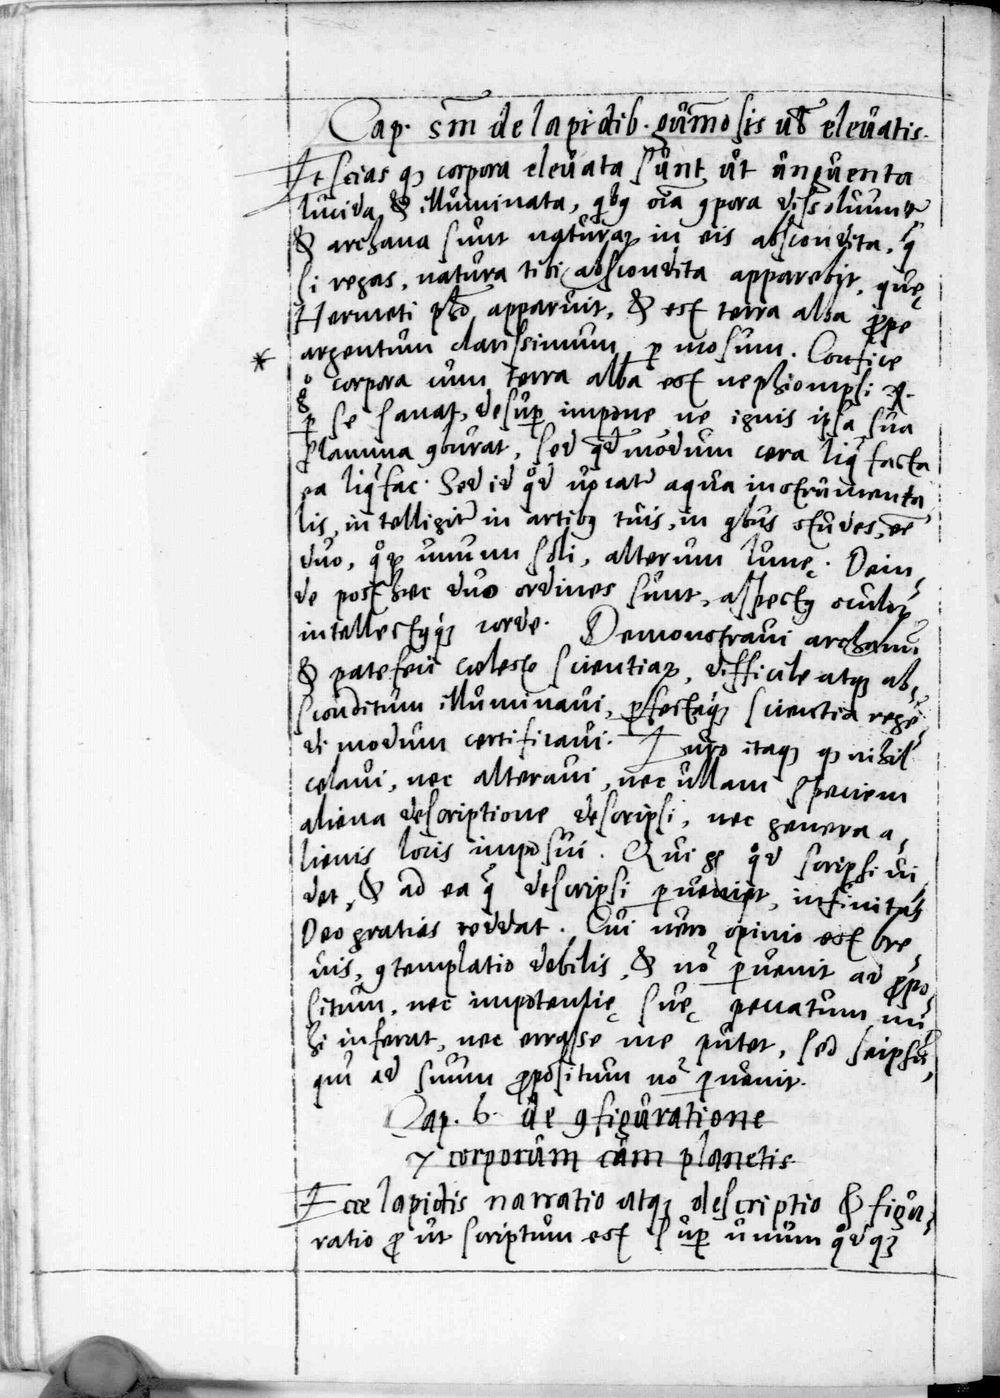 Cap. 5m de lapidib. gumosis elevatis.
Et scias q corpora elevata sunt ut unguenta
lucida & illuminata, qibq oia 9pora dissoluunt
& archana sunt naturaꝝ in eis abscondita, q
si regas, natura tibi abscondita apparebit, quę
Hermeti pho apparuit, & est terra alba prope
argentum clarissimum p mosum. Confice
* g° corpora cum terra alba est
p se sanat, desup impone, ne ignis ipsa sua
flamma 9burat, sed qdmodum cera liqfacta
ea liqfac. Sed id qd vocatr aqua instrumenta
lis, intelligitr in artibq tuis, in qbus studes, ee
duo, qꝝ unum soli, alterum lunę. Dein,
de post hec duo ordines sunt, aspectq oculoꝝ,
intellectqq; corde. Demonstravi archanu
& patefeci celesté scientiaꝝ, difficile atq; ab,
sconditum illuminavi, pfectaq; scientia rege
di modum certificavi. Juro itaq; q nihil
celavi, nec alteravi, nec ullam speciem
aliena descriptione descripsi, nec genera a,
lienis locis imposui. Qui g° qd scripsi vi
det, & ad ea q descripsi pveniet, infinitas
Deo gratias reddat. Cui vero opinio est bre
vis, 9templatio debilis, & no pvenit ad ppo,
situm, nec impotentię suę peccatum mi
hi inferat, nec errasse me putet, sed seipsu,
qui ad suum ppositum no pvenit.
Cap. 6. de 9figuratione
7 corporum cum planetis
Ecce lapidis narratio atq; descriptio & figu,
ratio put scriptum est sup unum qdq;